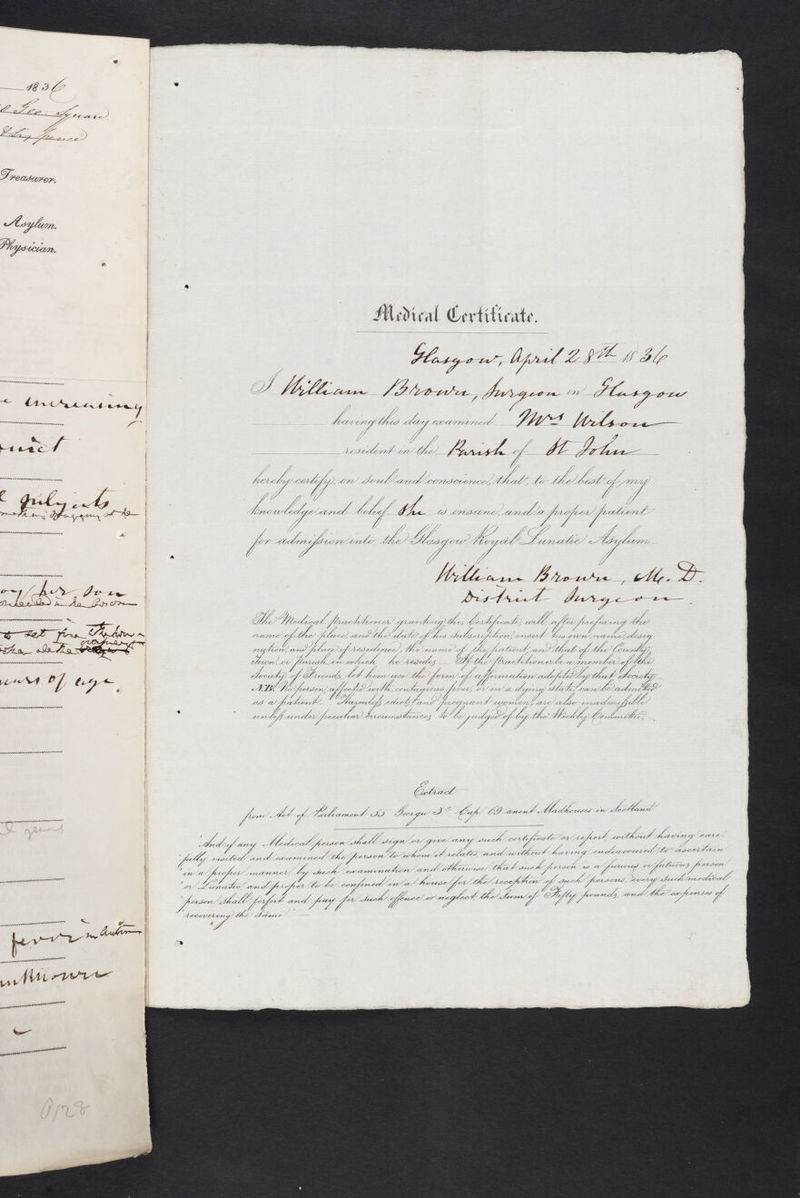 1836
Geo. Square
Treasurer.
Asylum.
Physician.
increasing
her son
set fire
years of age
fever in Autumn
unknown
0128
Medical Certificate.
Glasgow, April 28th 1836
I William Brown, Surgeon in Glasgow
having this day examined Mrs Wilson
resident in the Parish of St John
hereby certify, on soul and conscience, that, to the best of my
knowledge and belief She is insane, and a proper patient
for admission into the Glasgow Royal Lunatic Asylum
William Brown, M. D.
District Surgeon.
The Medical practitioner granting this Certificate, will, after prefixing the
name of the place, and the date of his subscription, insert his own name, desig
nation, and place of residence, the name of the patient, and that of the County,
town, or parish in which he resides. If the practitioner be a member of the
Society of Friends, let him use the form of affirmation adopted by that Society.
NB. No person affected with contagious fever, or in a dying state, can be admitted
as a patient. Harmless idiots and pregnant women are also inadmissible
unless under peculiar circumstances, to be judged of by the Weekly Committee.
Extract
from Act of Parliament 55 George 3d Cap. 69 anent Madhouses in Scotland
"And if any Medical person shall sign or give any such certificate or report without having care
"fully visited and examined the person to whom it relates and without having endeavoured to ascertain
"in a proper manner by such examination and otherwise that such person is a furious or fatuous person
"or Lunatic, and proper to be confined in a house for the reception of such persons, every such medical
"person shall forfeit and pay for such offence or neglect the sum of Fifty pounds, and the expenses of
"recovering the same"